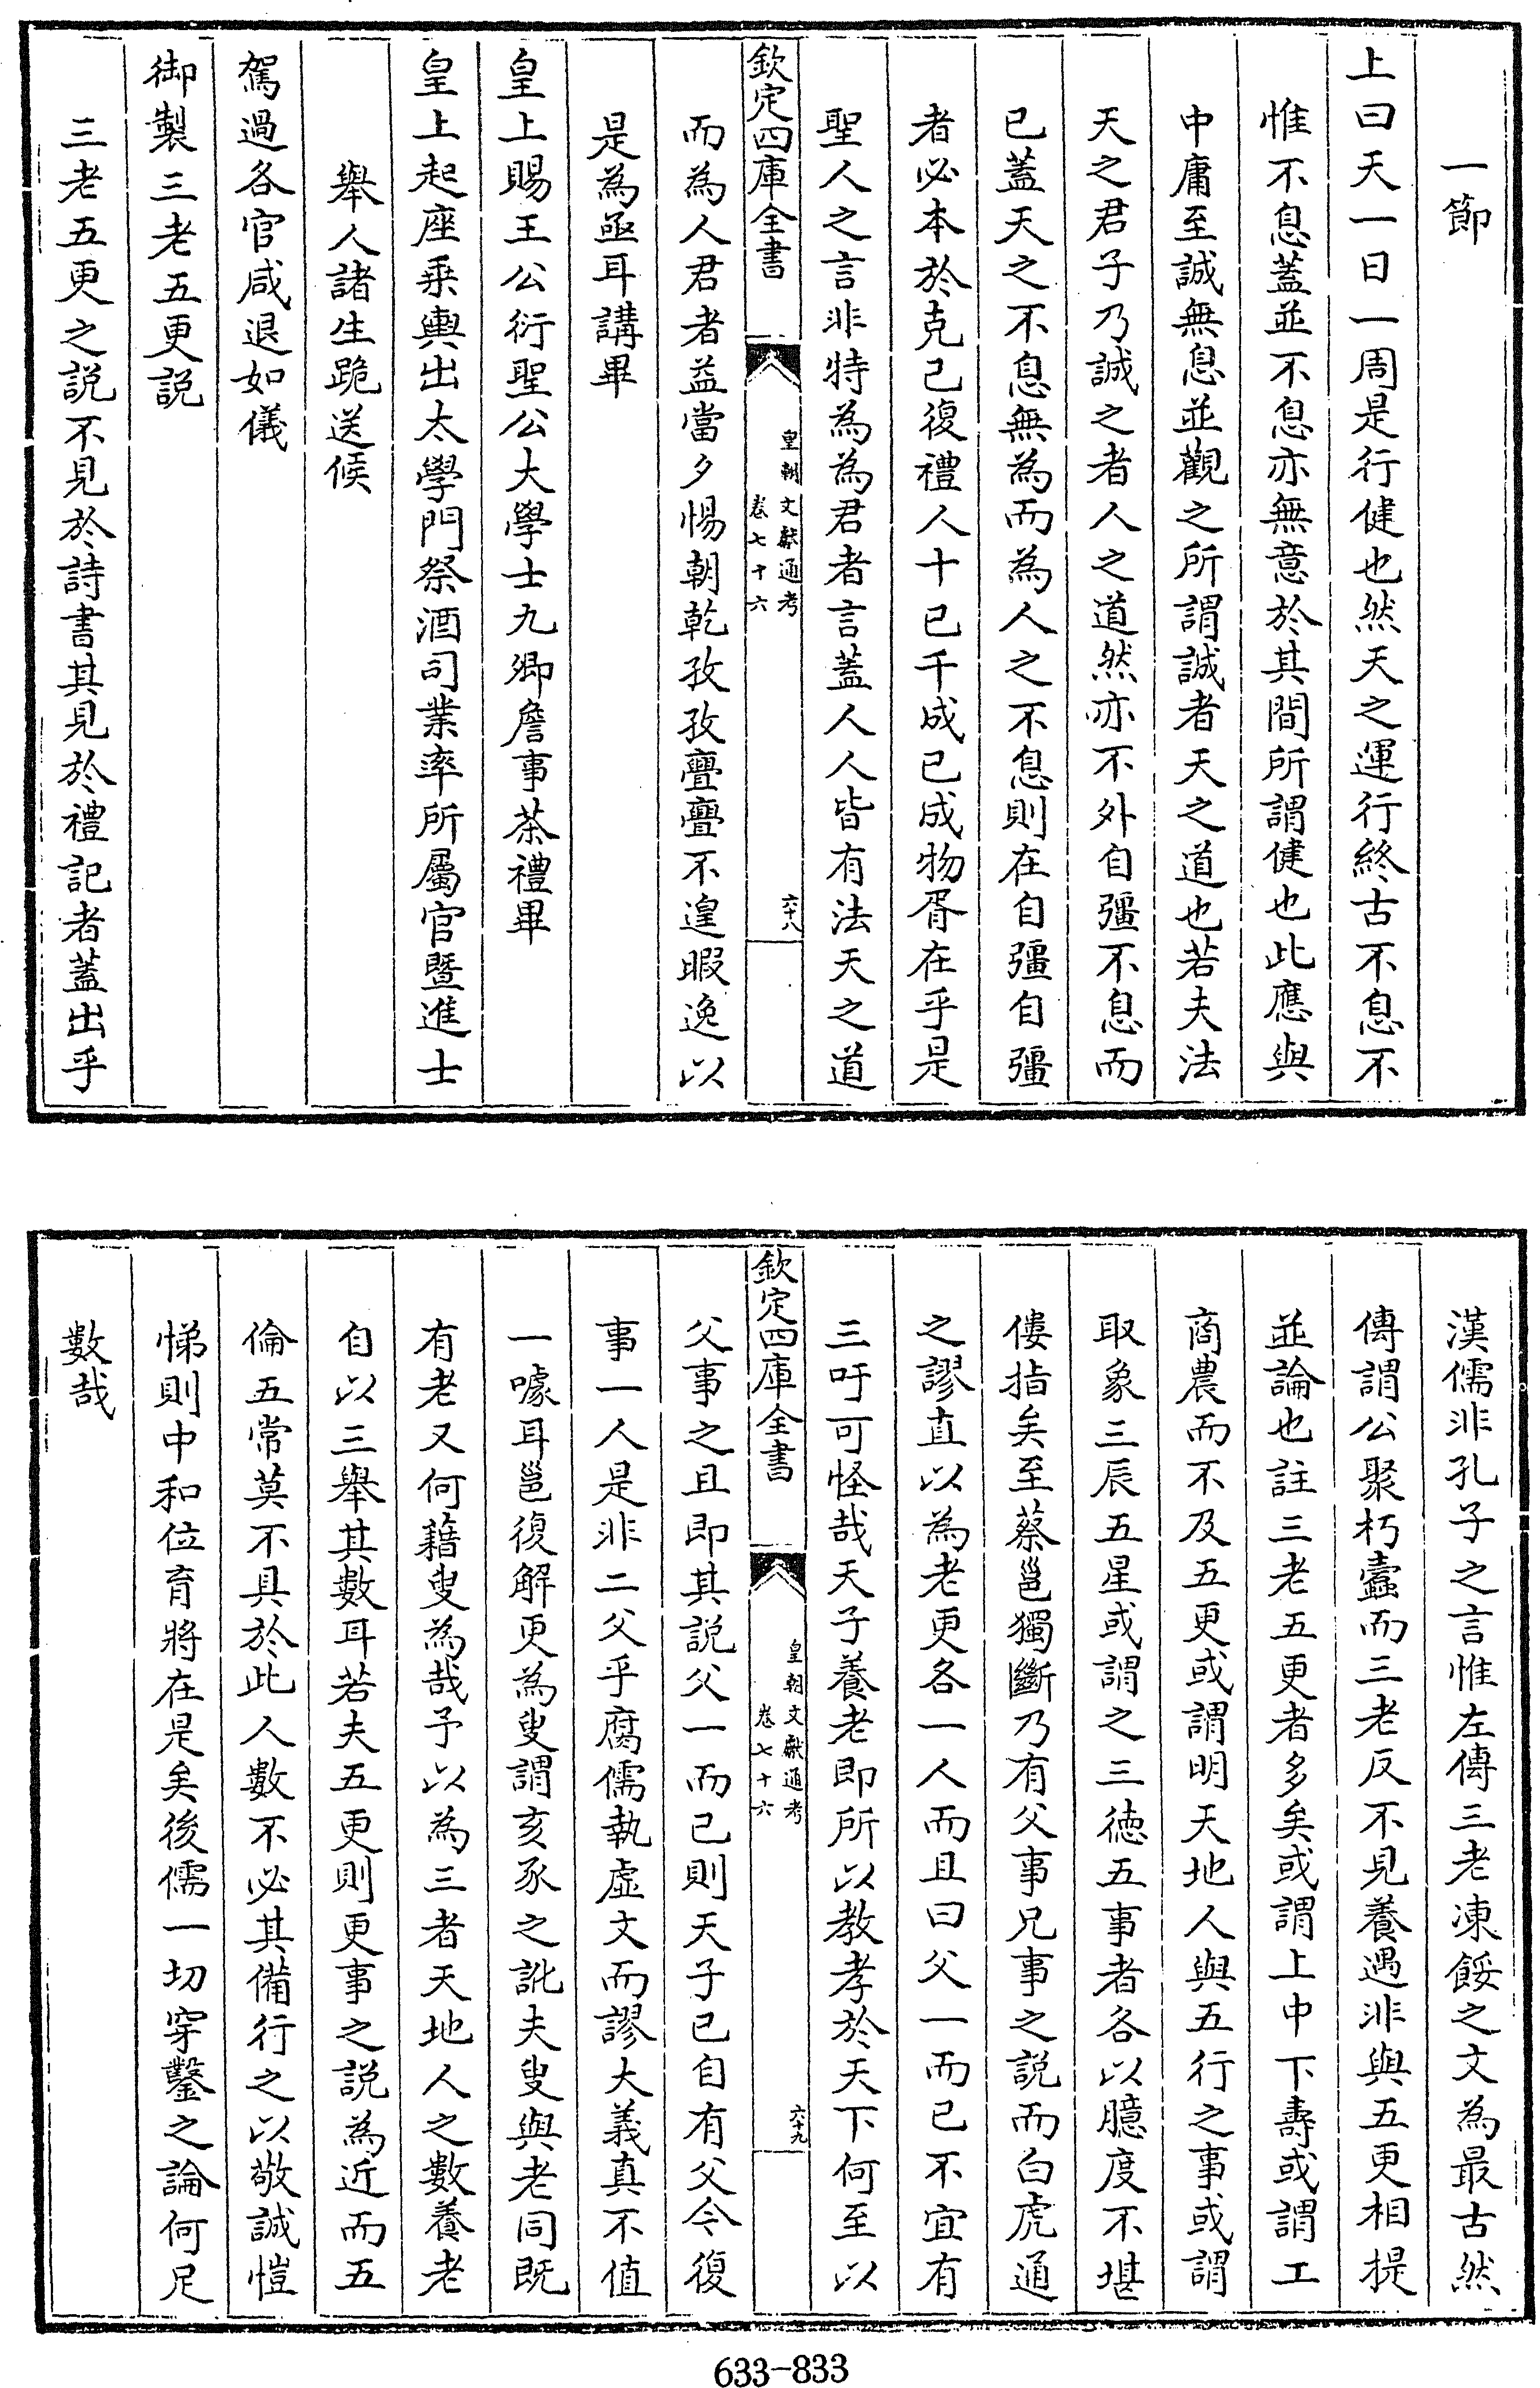 一節
上曰天一日一周是行健也然天之運行終古不息不
惟不息蓋並不息亦無意於其間所謂健也此應與
中庸至誠無息並觀之所謂誠者天之道也若夫法
天之君子乃誠之者人之道然亦不外自彊不息而
已蓋天之不息無為而為人之不息則在自彊自彊
者必本於克己復禮人十已千成已成物胥在乎是
聖人之言非特為為君者言蓋人人皆有法天之道
欽定四庫全書
皇朝文獻通考
卷七十六
六十八
而為人君者益當夕惕朝乾孜孜亹亹不遑暇逸以
是為亟耳講畢
皇上賜王公衍聖公大學士九卿詹事茶禮畢
皇上起座乘輿出太學門祭酒司業率所屬官暨進士
舉人諸生跪送候
駕過各官咸退如儀
御製三老五更說
三老五更之說不見於詩書其見於禮記者蓋出乎
漢儒非孔子之言惟左傳三老凍餒之文為最古然
傳謂公聚朽蠹而三老反不見養遇非與五更相提
並論也註三老五更者多矣或謂上中下壽或謂工
商農而不及五更或謂明天地人與五行之事或謂
取象三辰五星或謂之三德五事者各以臆度不堪
僂指矣至蔡邕獨斷乃有父事兄事之說而白虎通
之謬直以為老更各一人而且曰父一而已不宜有
三吁可怪哉天子養老即所以教孝於天下何至以
欽定四庫全書
皇朝文獻通考
卷七十六
六十九
父事之且即其說父一而已則天子已自有父今復
事一人是非二父乎腐儒執虛文而謬大義真不值
一噱耳邕復解更為叟謂亥豕之訛夫叟與老同既
有老又何藉叟為哉予以為三者天地人之數養老
自以三舉其數耳若夫五更則更事之說為近而五
倫五常莫不具於此人數不必其備行之以敬誠愷
悌則中和位育將在是矣後儒一切穿鑿之論何足
數哉
633-833